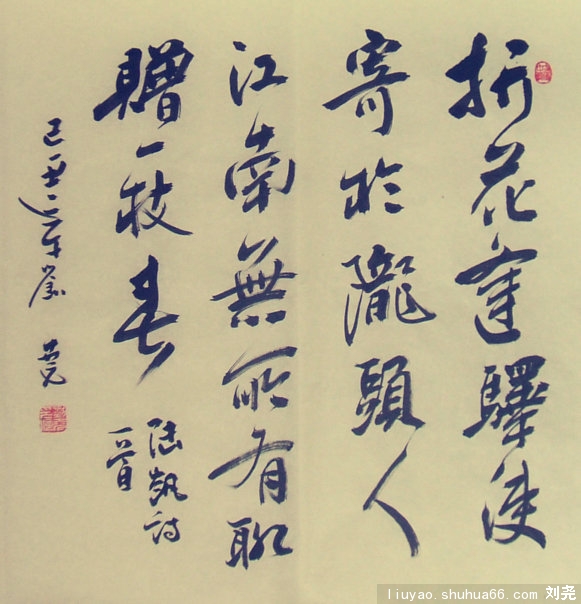 折花逢驛使
寄於隴頭人
江南無所有聊
贈一枝春
陆凱詩
一首
己丑之年劉堯
liuyao.shuhua66.com 刘尧